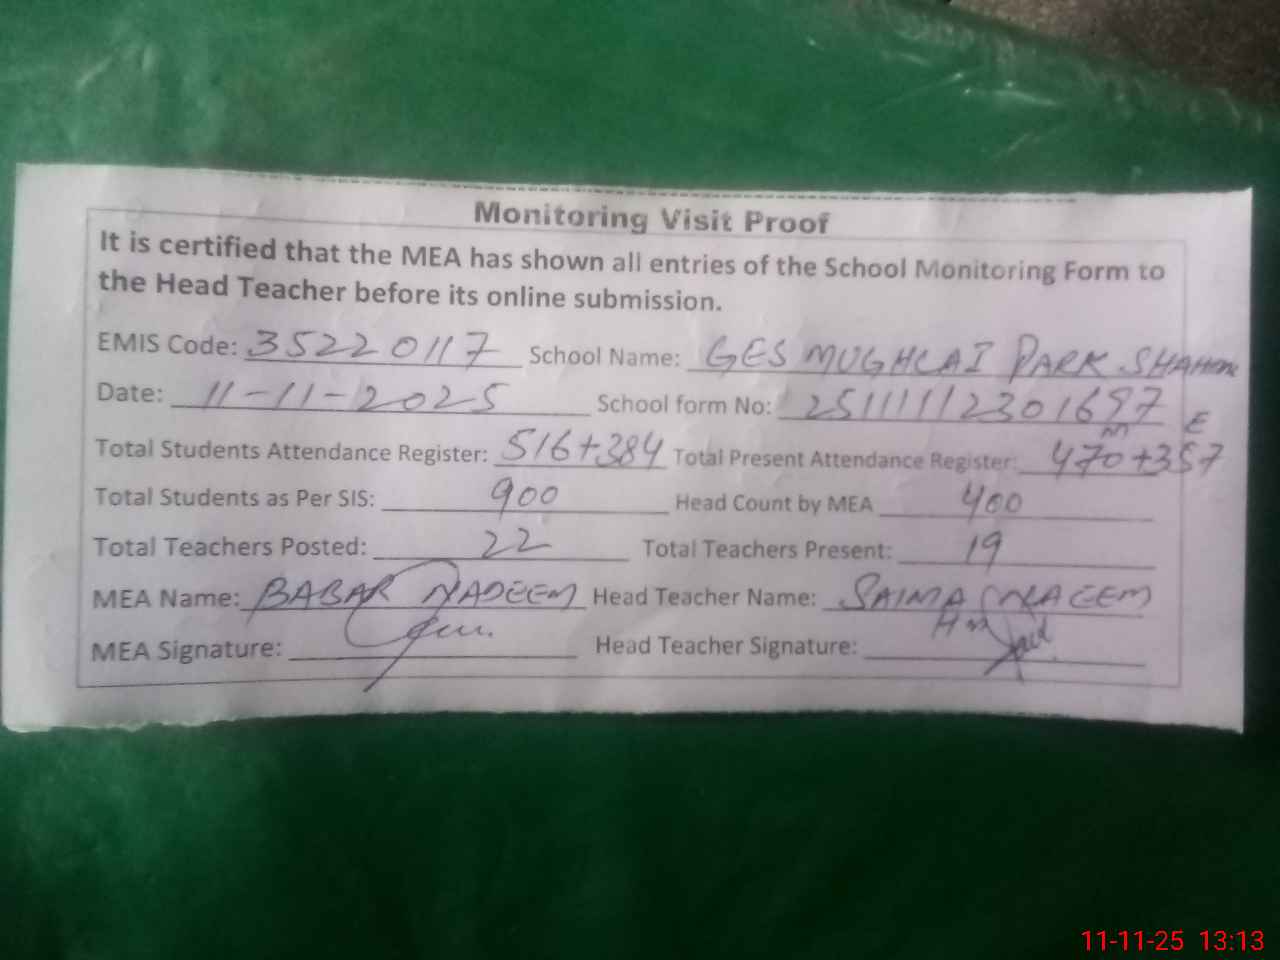 Monitoring Visit Proof
It is certified that the MEA has shown all entries of the School Monitoring Form to
the Head Teacher before its online submission.
EMIS Code: 35220117 School Name: GES MUGHLAI PARK
Date: 11-11-2025 School form No: 251111112301697
M E
Total Students Attendance Register: 516+384 Total Present Attendance Register: 470+357
Total Students as Per SIS: 900 Head Count by MEA 400
Total Teachers Posted: 22 Total Teachers Present: 19
MEA Name: BABAR NADEEM Head Teacher Name: SAIMA NAEEM
MEA Signature: Head Teacher Signature:
11-11-25 13:13